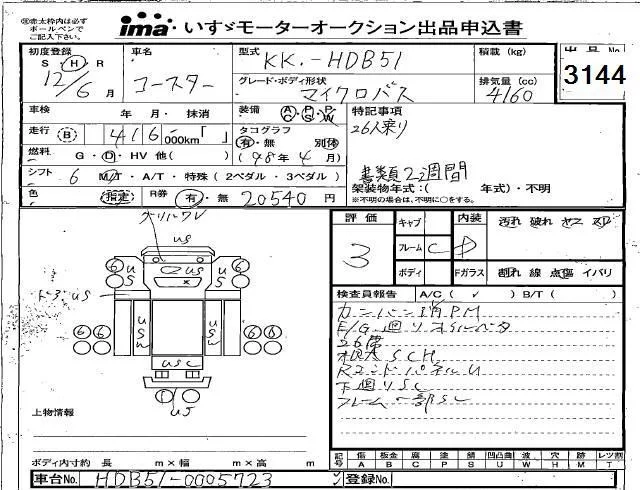 ㊟赤太枠内は必ず
ボールペンで
ご記入下さい。
ima いすゞモーターオークション出品申込書
初度登録 車名 型式 KK.-HDB51 積載 (kg) 出品No
S H R コースター グレード・ボディ形状 排気量 (cc) 3144
12/6 月 マイクロバス 4160
車検 年 月・抹消 装備 特記事項
走行 B 416 000km「 」 タコグラフ 26人乗り
有・無 別体
燃料 G・D・HV 他( ) (98年4月)
シフト 6 M/T・A/T・特殊 (2ペダル・3ペダル) 書類2週間
架装物年式:( 年式)・不明
色 指定 R券 有・無 20540 円 ※不明の場合は、不明に○をする。
評価 キャブ 内装 汚れ 破れ ヤニ スレ
3 フレーム C D
ボディ Fガラス 割れ 線 点傷 イバリ
検査員報告 A/C( ✓ ) B/T( )
US
US
6 6
US US
US US
6 6 6 6
USC
US
E/G廻りオイルベタ
26席
SCH
RエンドパネルU
下廻りSC
フレーム一部SC
上物情報
記号 傷 A 板金 B 腐 C 塗 P 錆 S 凹凸曲 U 波 W 穴 H 跡 M レツ割 T
ボディ内寸約 長 m×幅 m×高 m
車台No. HDB51-0005723 登録No.